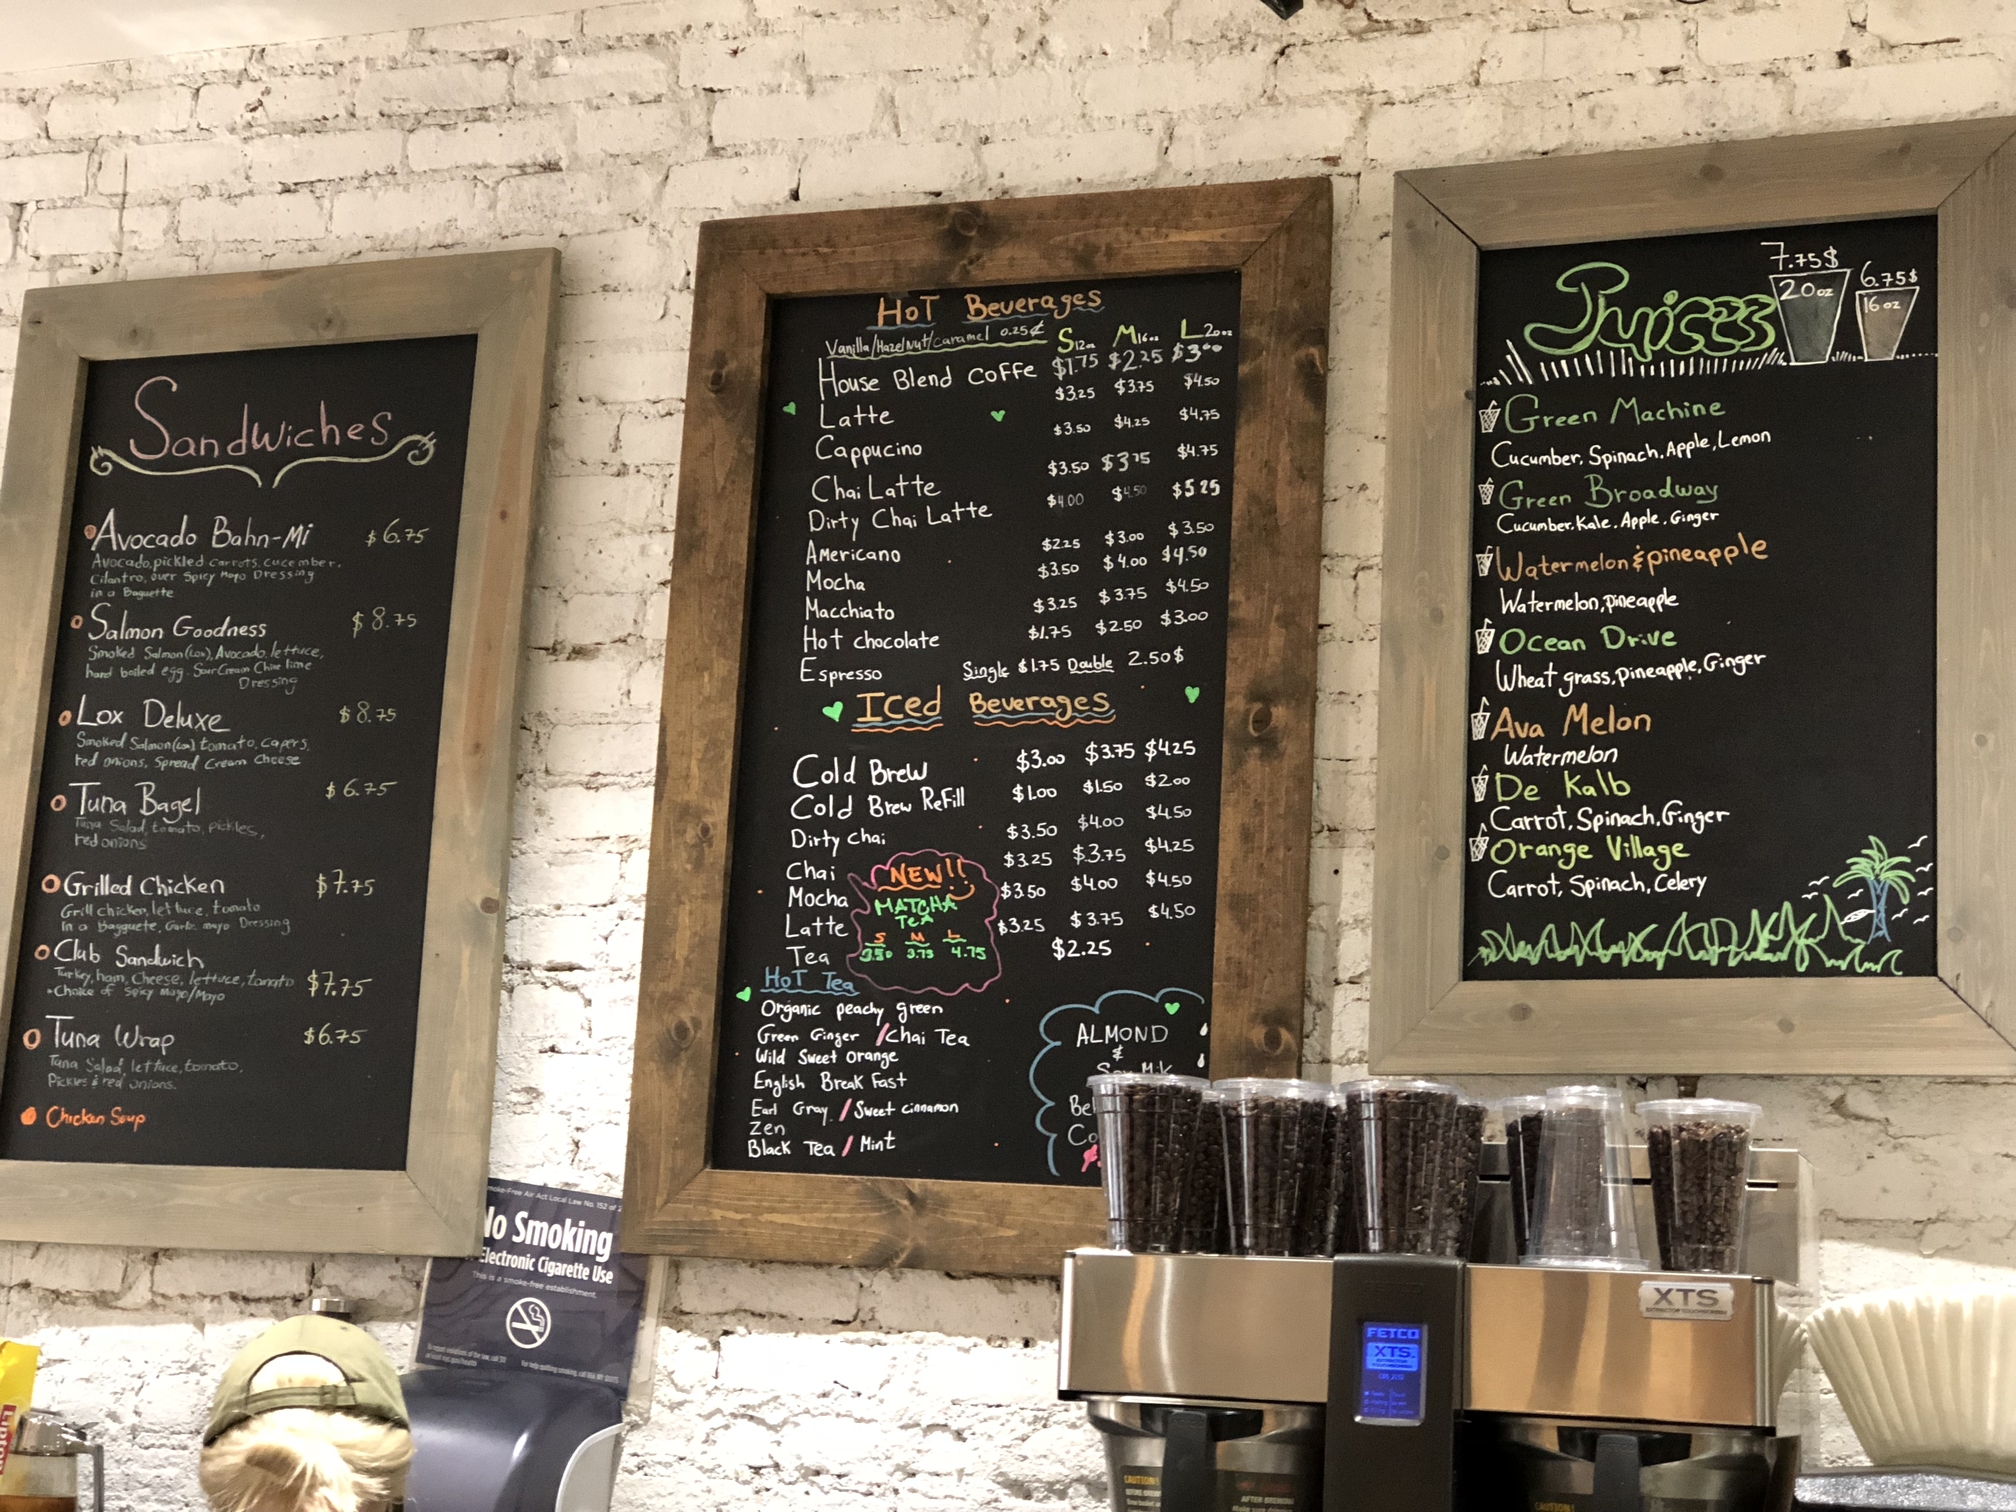 Sandwiches
Avocado Bahn-Mi $6.75
Avocado, pickled carrots, cucember,
Cilantro, over Spicy Mayo Dressing
in a Baguette
Salmon Goodness $8.75
Smoked Salmon(Lox), Avocado, lettuce,
hard boiled egg. Sour Cream Chive lime
Dressing
Lox Deluxe $8.75
Smoked Salmon(Lox) tomato, capers,
red onions, Spread Cream Cheese
Tuna Bagel $6.75
Tuna Salad, tomato, pickles,
red onions
Grilled Chicken $7.75
Grill chicken, lettuce, tomato
in a Baguette, Garlic mayo Dressing
Club Sandwich
Turkey, ham, Cheese, lettuce, tomato $7.75
*Choice of Spicy Mayo/Mayo
Tuna Wrap $6.75
Tuna Salad, lettuce, tomato,
Pickles & red onions.
Chicken Soup
HoT Beverages
Vanilla/HazelNut/caramel 0.25¢ S 12oz M 16oz L 20oz
House Blend Coffe $1.75 $2.25 $3.00
Latte $3.25 $3.75 $4.50
Cappucino $3.50 $4.25 $4.75
Chai Latte $3.50 $3.75 $4.75
Dirty Chai Latte $4.00 $4.50 $5.25
Americano $2.25 $3.00 $3.50
Mocha $3.50 $4.00 $4.50
Macchiato $3.25 $3.75 $4.50
Hot chocolate $1.75 $2.50 $3.00
Espresso Single $1.75 Double 2.50$
Iced Beverages
Cold Brew $3.00 $3.75 $4.25
Cold Brew Refill $1.00 $1.50 $2.00
Dirty chai $3.50 $4.00 $4.50
Chai $3.25 $3.75 $4.25
Mocha $3.50 $4.00 $4.50
Latte $3.25 $3.75 $4.50
Tea $2.25
NEW!!
MATCHA
TEA
S M L
3.50 3.75 4.75
HoT Tea
Organic peachy green
Green Ginger /Chai Tea
Wild Sweet orange
English Break Fast
Earl Gray / Sweet cinnamon
Zen
Black Tea / Mint
ALMOND
&
Soy Milk
Juices
7.75$
20oz
6.75$
16oz
Green Machine
Cucumber, Spinach, Apple, Lemon
Green Broadway
Cucumber, Kale, Apple, Ginger
Watermelon & pineapple
Watermelon, pineapple
Ocean Drive
Wheat grass, pineapple, Ginger
Ava Melon
Watermelon
De Kalb
Carrot, Spinach, Ginger
Orange Village
Carrot, Spinach, Celery
Smoke-Free Air Act Local Law No. 152 of
No Smoking
Electronic Cigarette Use
This is a smoke-free establishment.
XTS
FETCO
XTS
CAUTION!
AFTER BREWING
CAUTION!
Lipton